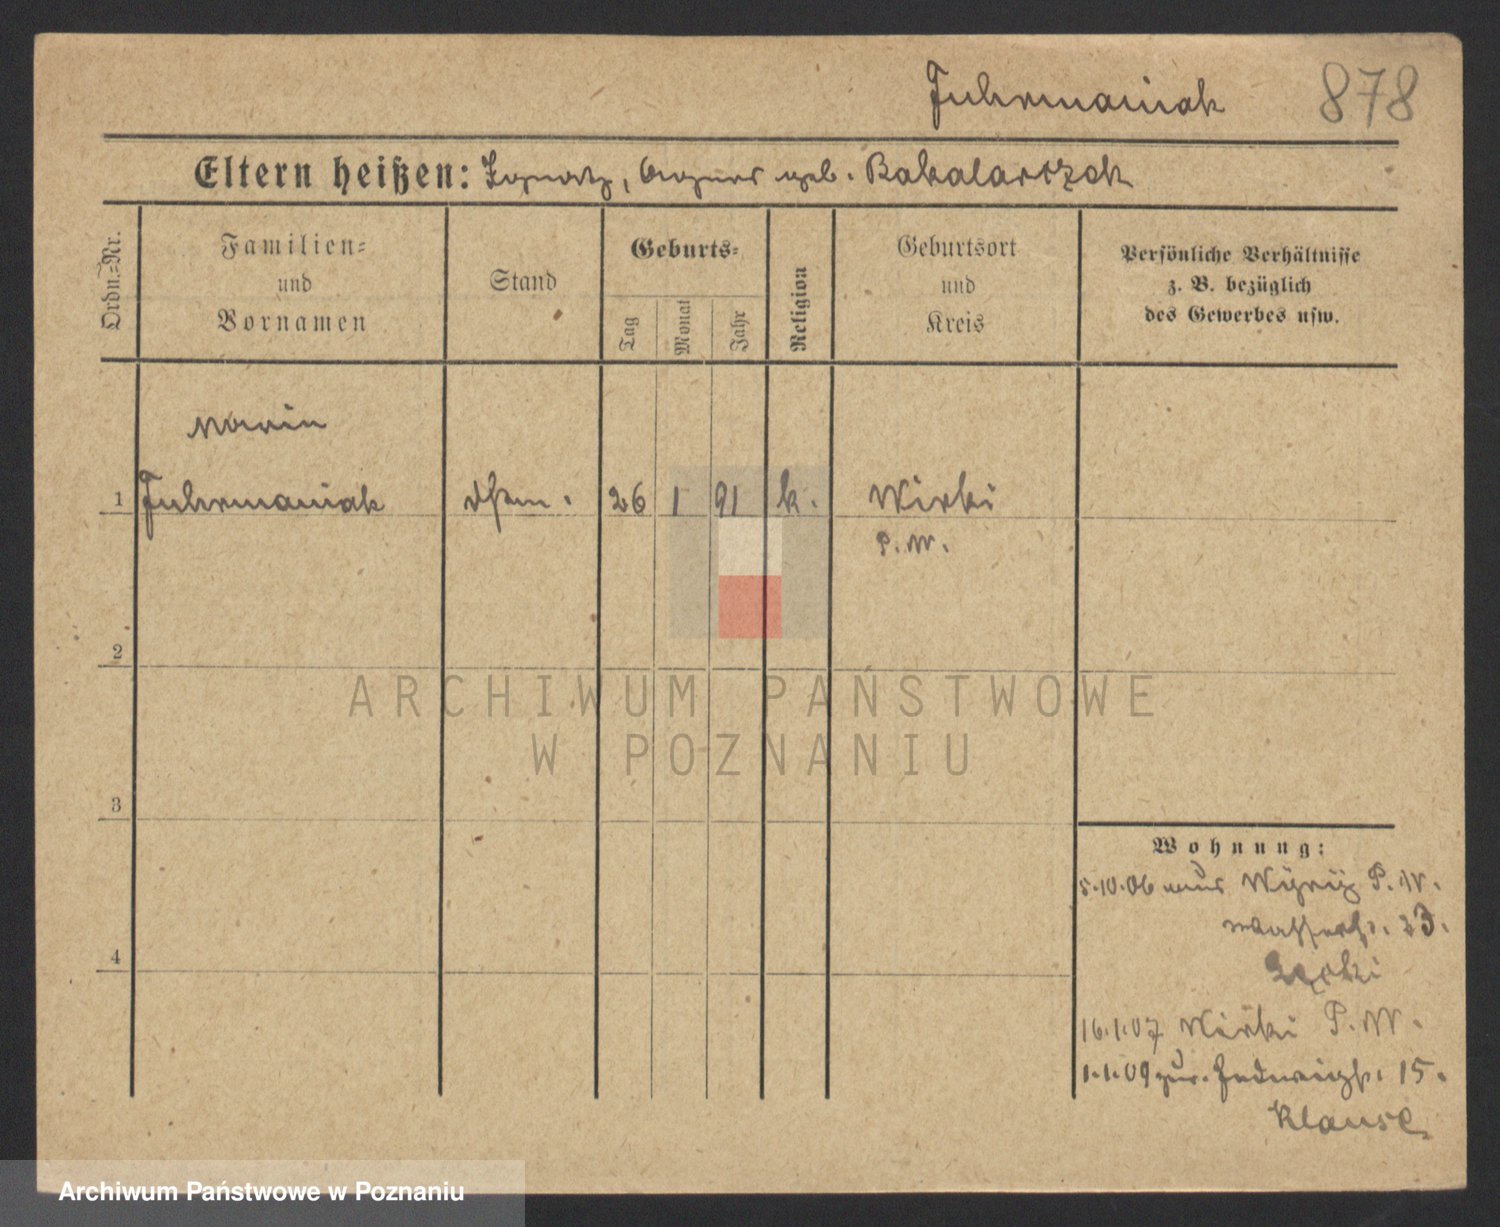 Fuhrmaniak 878
Eltern heißen: Ignatz, Agnes geb. Bakalarczak
Ordn.=Nr.
Familien=
und
Vornamen
Stand
Geburts=
Tag
Monat
Jahr
Religion
Geburtsort
und
Kreis
Persönliche Verhältnisse
z. B. bezüglich
des Gewerbes usw.
Marie
1 Fuhrmaniak 26 1 91 k. Wirki
P.W.
2
ARCHIWUM PAŃSTWOWE
W POZNANIU
3
4
Wohnung:
5.10.06 aus P.W.
Wasserstr. 23.
16.1.07 Wirki P.W.
1.1.09 zur. Hedwigstr. 15.
Klause
Archiwum Państwowe w Poznaniu